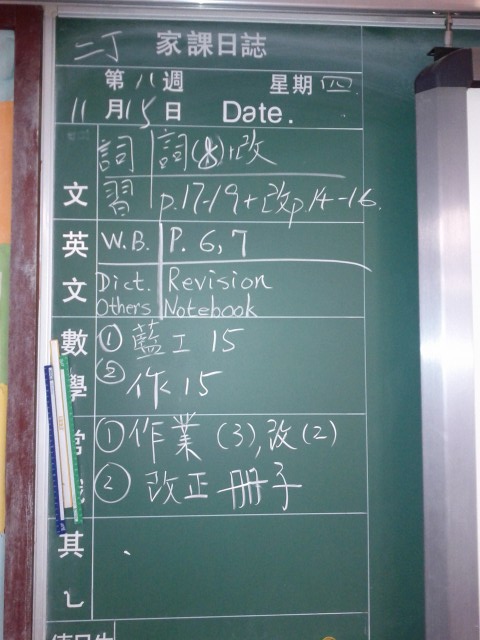 二丁 家課日誌
第八週 星期四
11月15日 Date.
文 詞 詞(8)+改
習 p.17-19+改p.14-16.
英文 W.B. P. 6,7
Dict. Revision
Others Notebook
數學 ① 藍工 15
② 作15
常 ① 作業 (3),改(2)
② 改正 冊子
其